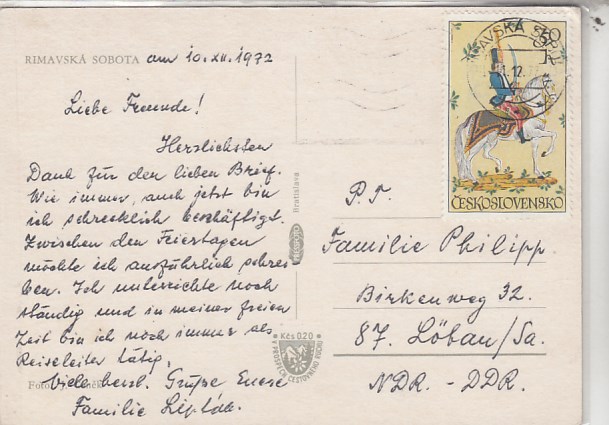 RIMAVSKÁ SOBOTA am 10.XII.1972
Liebe Freunde!
Herzlichsten
Dank für den lieben Brief.
Wie immer, auch jetzt bin
ich schrecklich beschäftigt.
Zwischen den Feiertagen
möchte ich ausführlich schrei
ben. Ich unterrichte noch
ständig und in meiner freien
Zeit bin ich noch immer als
Reiseleiter tätig.
Viele herzl. Grüße Euere
Familie Lipták.
Foto:
Kčs 0,20
V PROSPĚCH CESTOVNÍHO RUCHU
PRESSFOTO
Bratislava
ČESKOSLOVENSKO
P.T.
Familie Philipp
Birkenweg 32.
87. Löbau/Sa.
NDR. - DDR.